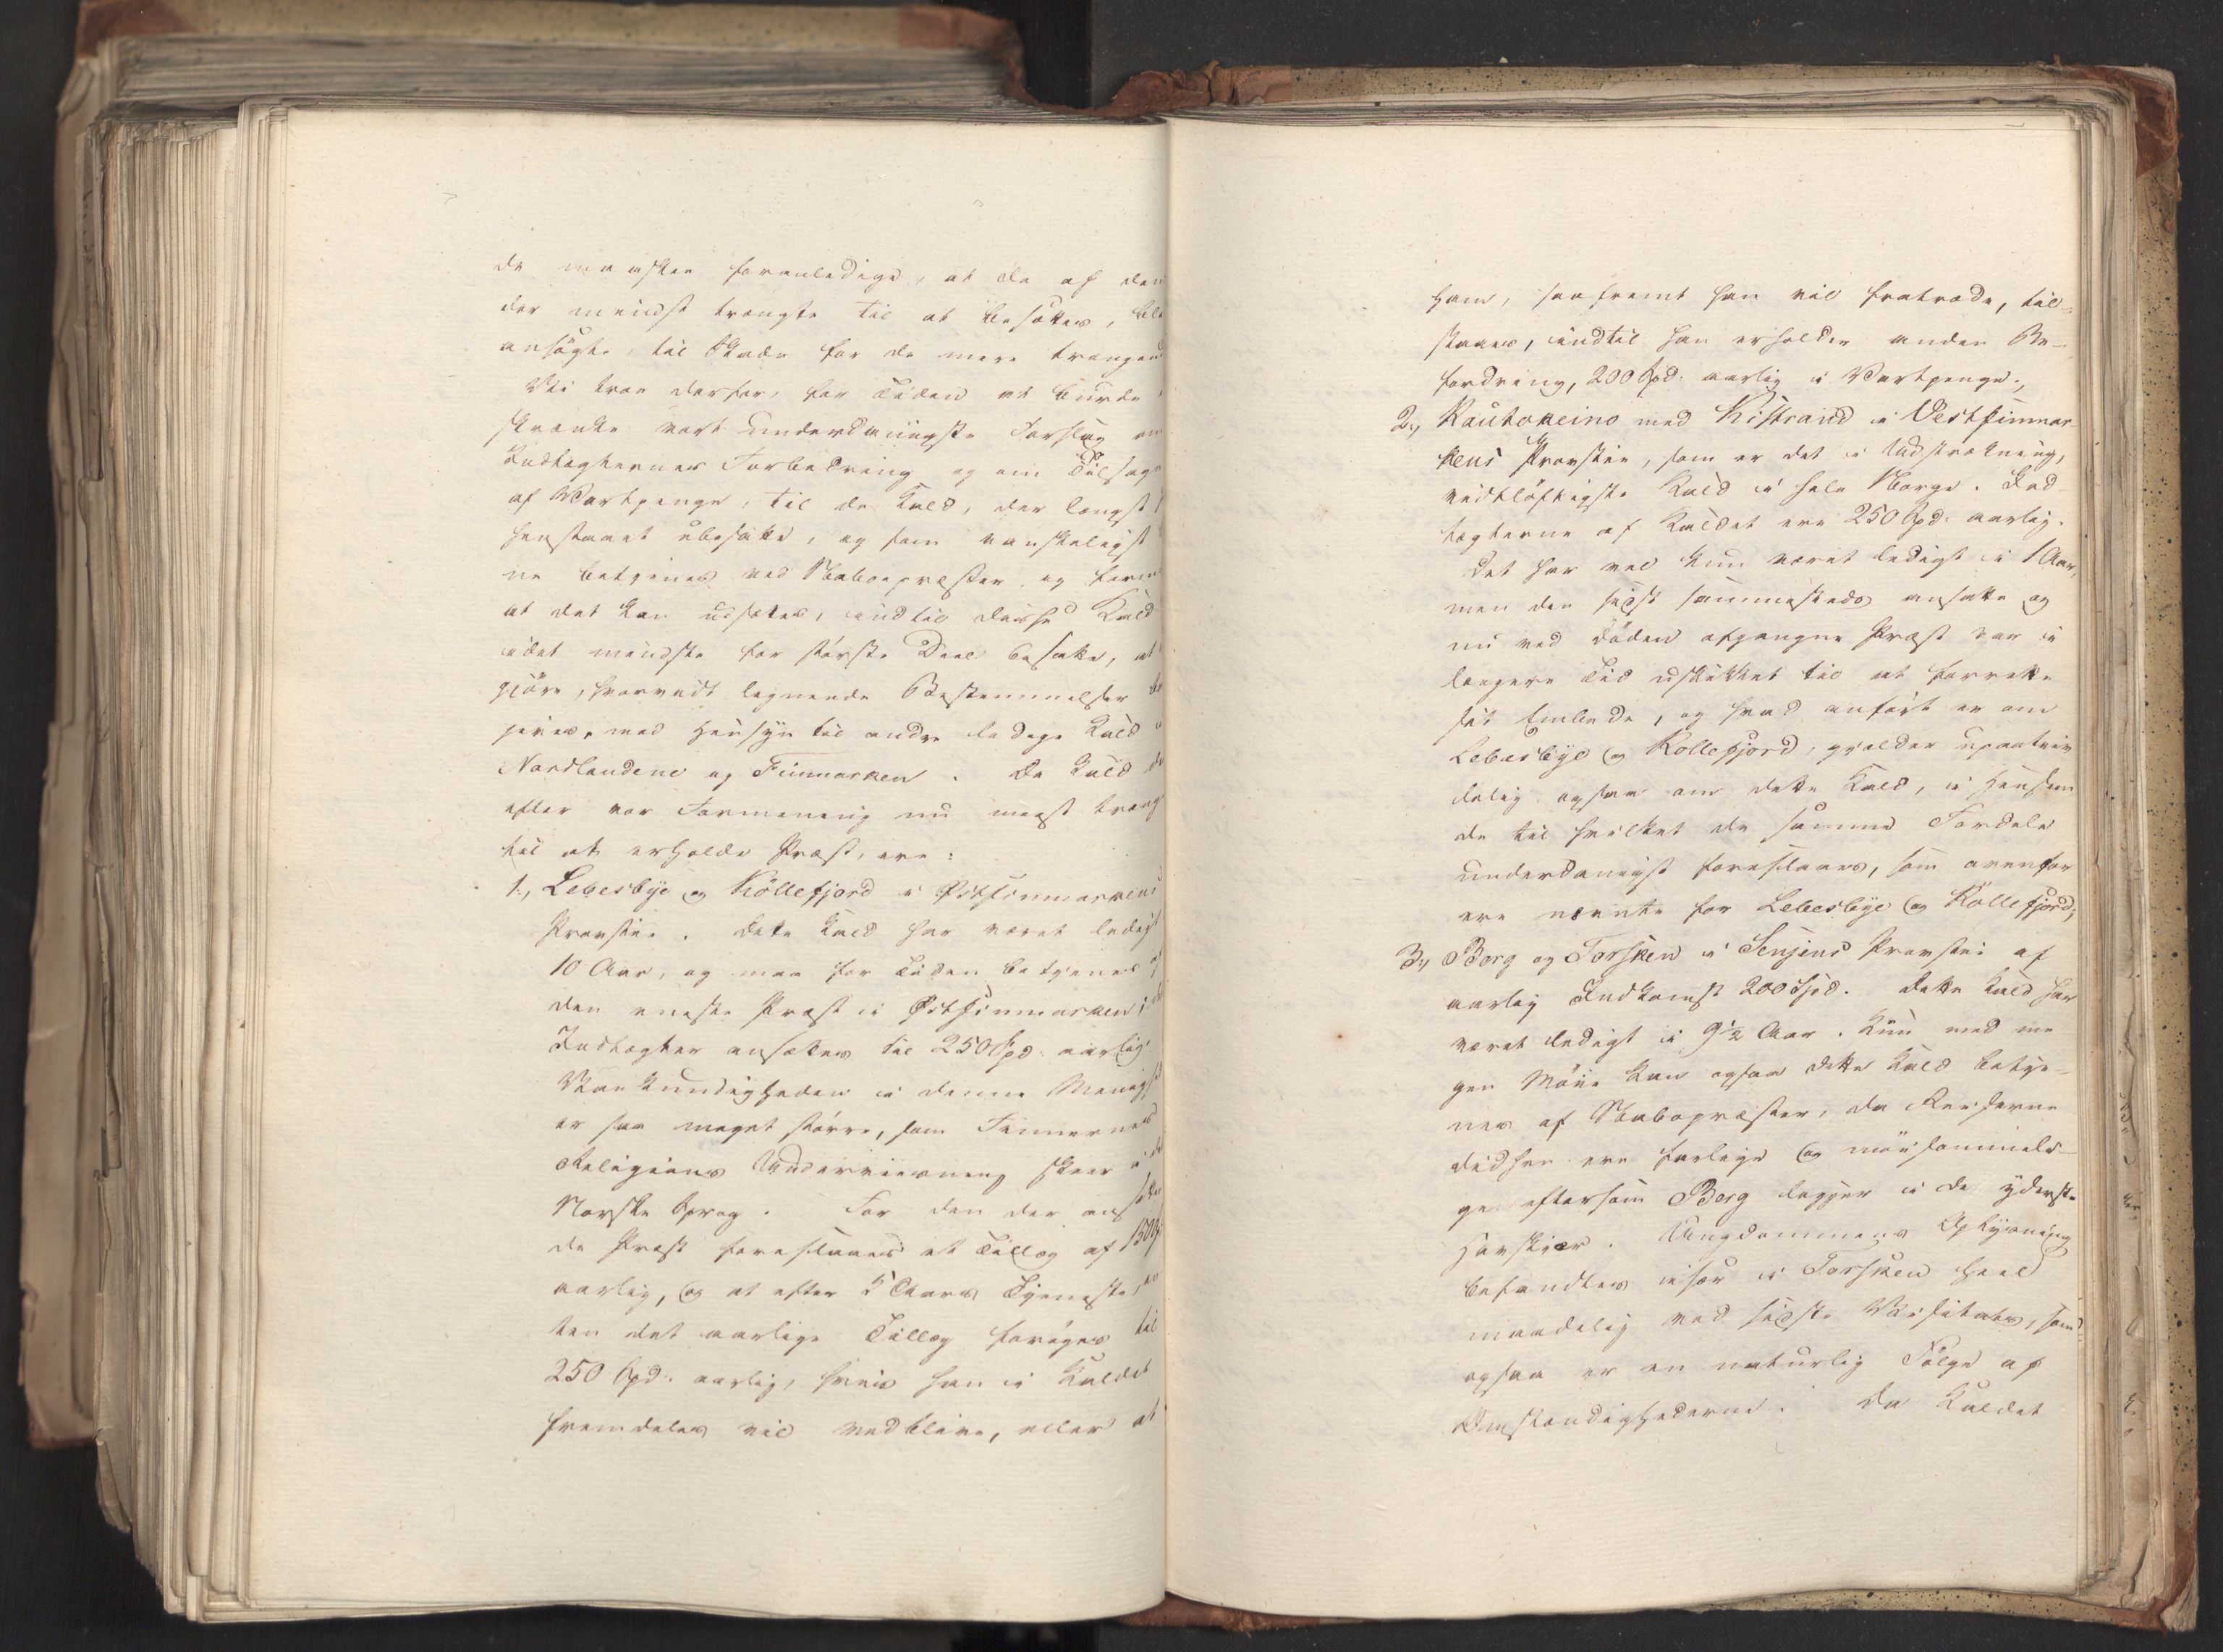 de maaskee foranledige, at de af dem
der mindst trængte til at besættes, ble
ansøgte, til Skade for de mere trængend
Vi troe derfor, for Tiden at burde
skrænke vort underdanigste Forslag om
Indtægternes Forbedring og om Tilsagn
af Vartpenge, til de Kald, der længst
henstaaet ubesatte, og som vanskeligst
re betjenes ved Naboepræster og form
at det kan udsættes, indtil disse Kald
idet mindste for største Deel besatte, at
gjøre, hvorvidt lignende Bestemmelser bø
gives, med Hensyn til andre ledige Kald i
Nordlandene og Finmarken. De Kald de
efter vor Formening nu meest træng
til at erholde Præst, ere:
1., Lebesbye og Kollefjord i Østfinmarkens
Provstie. Dette Kald har været ledigt
10 Aar, og maa for Tiden betjenes af
den eneste Præst i Østfinmarken; de
Indtægter ansættes til 250 Spd. aarlig.
Vankundigheden i denne Menigh
er saa meget større, som Finnernes
Religions Underviisning skeer i de
Norske Sprog. For den der ansætte
de Præst foreslaaes et Tillæg af 150 Sp
aarlig, og at efter 5 Aars Tjeneste, en
ten det aarlige Tillæg forøges til
250 Spd. aarlig, hvis han i Kaldet
fremdeles vil vedblive, eller at
ham, saafremt han vil fratræde, til-
staaes, indtil han erholder anden Be-
fordring, 200 Spd. aarlig i Vartpenge.,
2., Kautokeino med Kistrand i Vestfinmar
kens Provstie, som er det i Udstrækning,
vidtløftigste Kald i hele Norge. Ind
tægterne af Kaldet ere 250 Spd. aarlig.
Det har vel kun været ledigt i 1 Aar,
men den sidst sammesteds ansatte og
nu ved Døden afgangne Præst var i
længere Tid uskikket til at forrette
sit Embede, og hvad anført er om
Lebesbye og Kollefjord, gjælder upaatviv
delig ogsaa om dette Kald, i Henseen
de til hvilket de samme Fordele
underdanigst foreslaaes, som ovenfor
ere nævnte for Lebesbye og Kollefjord;
3., Berg og Torsken i Senjens Provstie af
aarlig Indkomst 200 Spd. Dette Kald har
været ledigt i 9½ Aar. Kun med me
gen Møie kan ogsaa dette Kald betje-
nes af Nabopræster, da Reiserne
didhen ere farlige og møisommeli-
ge eftersom Berg ligger i de yderste
Havskjær. Ungdommens Oplysning
befandtes især i Torsken heel
maadelig ved sidste Visitats, som
ogsaa er en naturlig Følge af
Omstændighederne. Da Kaldet